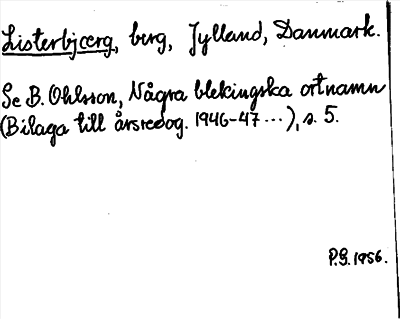 Listerbjærg, berg, Jylland, Danmark.
Se B. Ohlsson, Några blekingska ortnamn
(Bilaga till årsredog. 1946-47 ...), s. 5.
P.G. 1956.